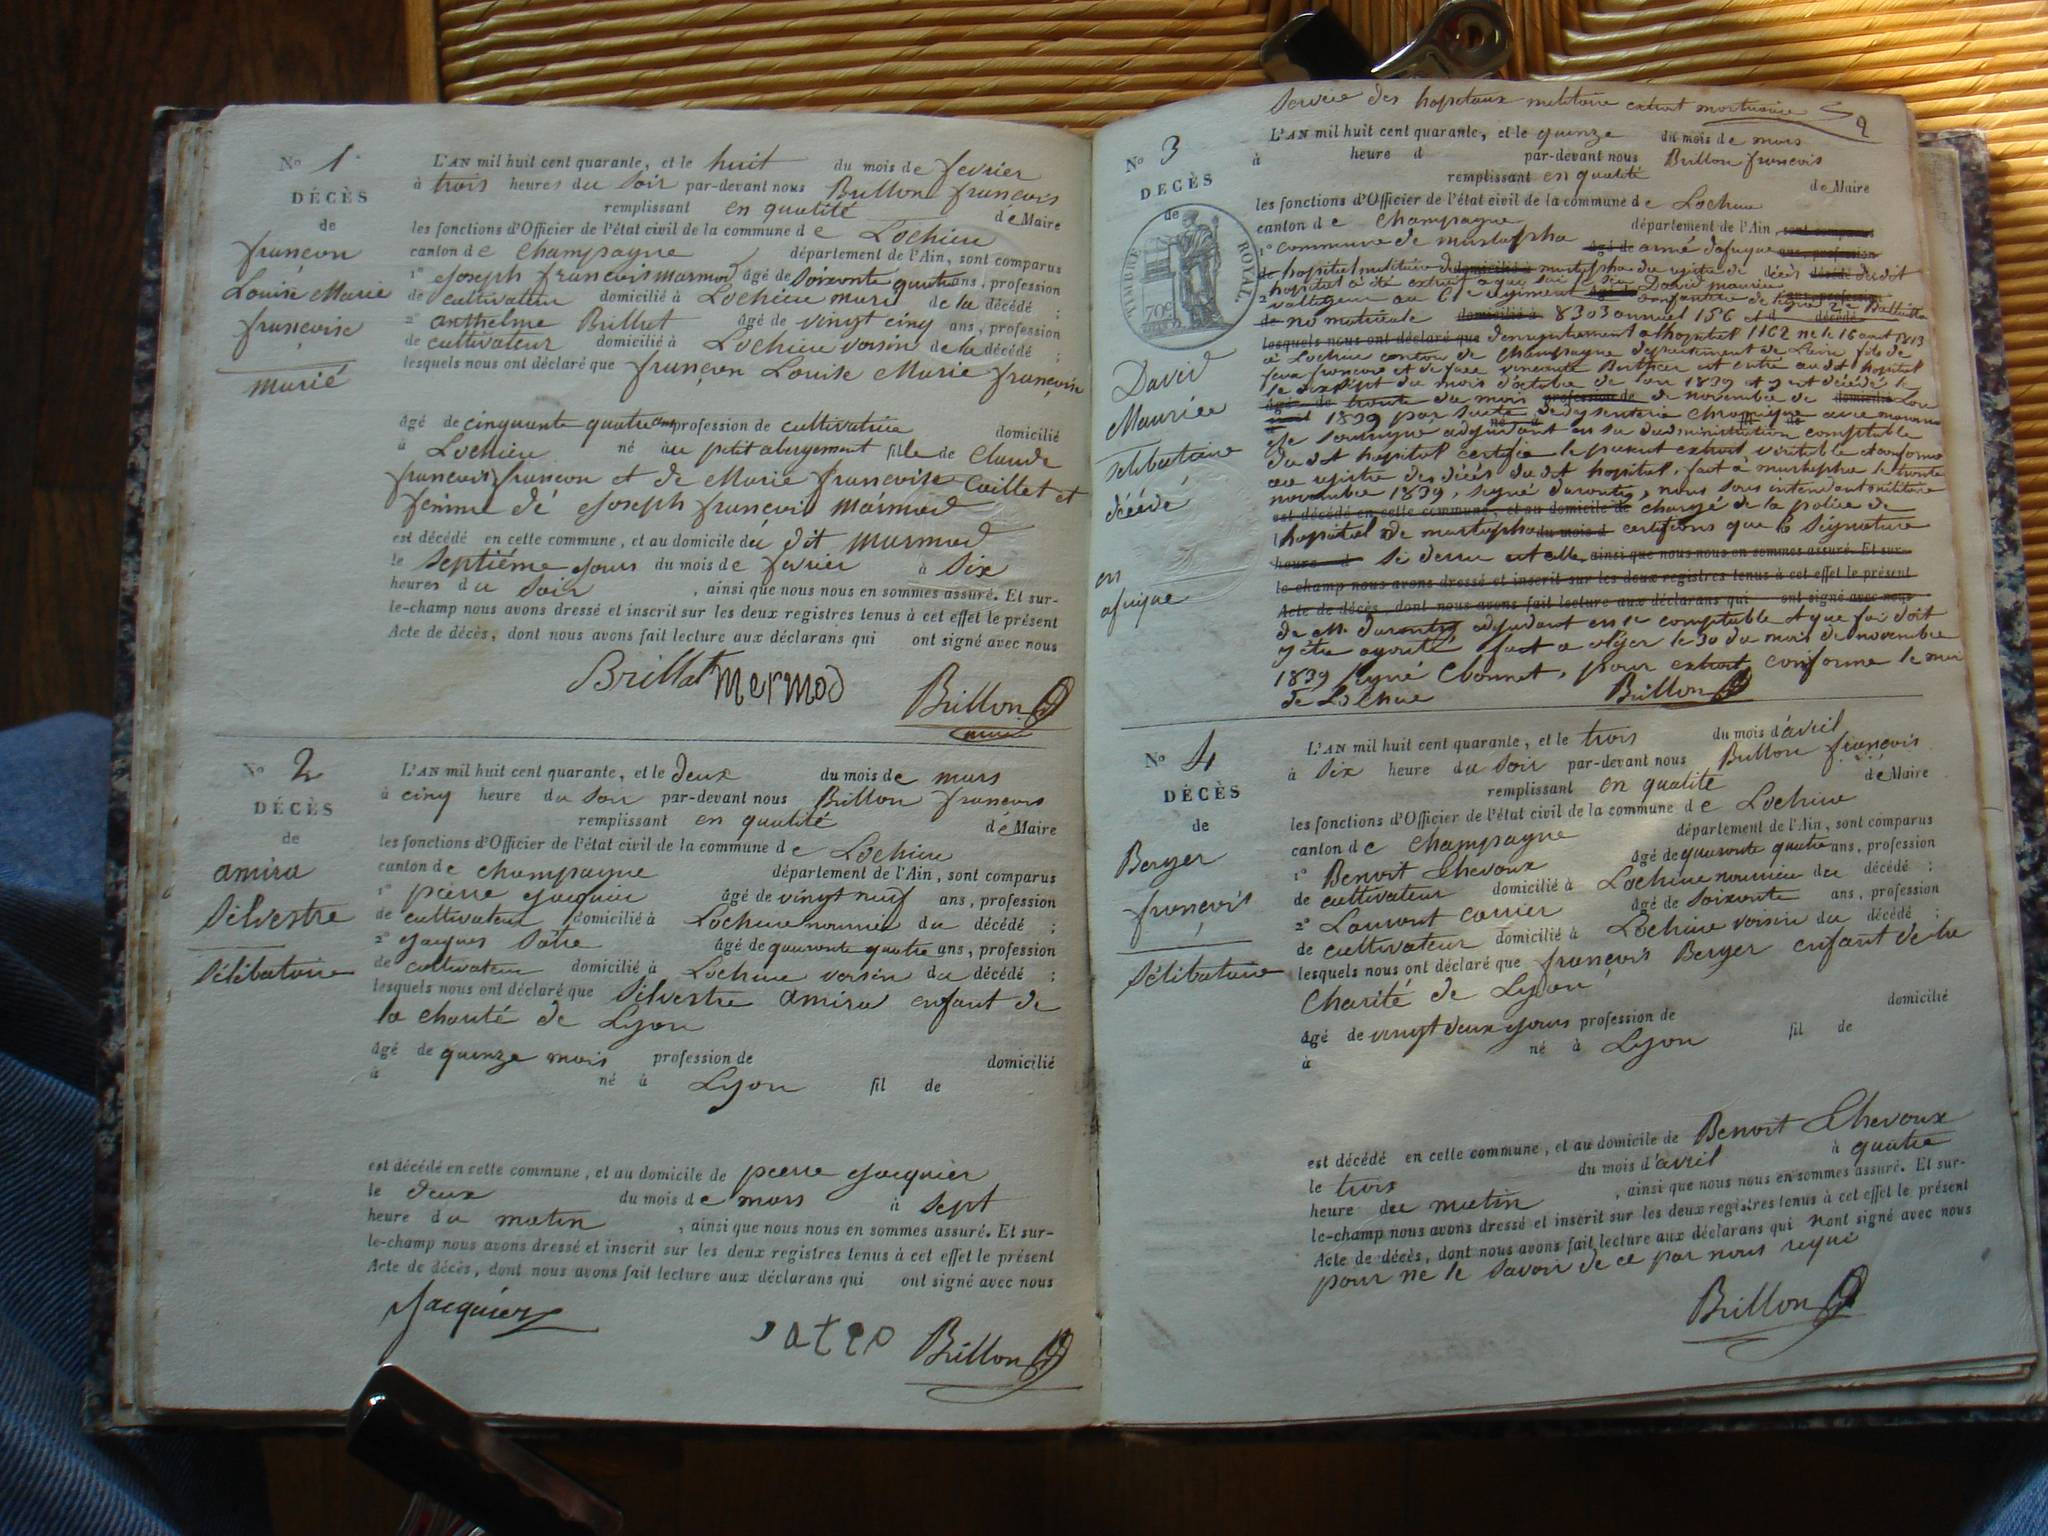 N° 1
DÉCÈS
de
françon
Louise Marie
françoise
marié
L'AN mil huit cent quarante, et le huit du mois de fevrier
à trois heures du Soir par-devant nous Brillon françois
remplissant en qualité de Maire
les fonctions d'Officier de l'état civil de la commune de Lochieu
canton de Champagne département de l'Ain, sont comparus
1° Joseph françois marmod âgé de Soixante quatre ans, profession
de cultivateur domicilié à Lochieu mari de la décédé ;
2° anthelme Brillat âgé de vingt cinq ans, profession
de cultivateur domicilié à Lochieu voisin de la décédé ;
lesquels nous ont déclaré que françon Louise Marie françoise
âgé de cinquante quatre ans profession de cultivatrice domicilié
à Lochieu né au petit abergement fille de Claude
françois françon et de Marie françoise Caillet et
femme de Joseph françois marmod
est décédé en cette commune, et au domicile du dit marmod
le Septiéme jour du mois de fevrier à Six
heures du Soir , ainsi que nous nous en sommes assuré. Et sur-
le-champ nous avons dressé et inscrit sur les deux registres tenus à cet effet le présent
Acte de décès, dont nous avons fait lecture aux déclarans qui ont signé avec nous
Brillat mermod Brillon
N° 2
DÉCÈS
de
amira
Silvestre
Sélibataire
L'AN mil huit cent quarante, et le deux du mois de mars
à cinq heure du Soir par-devant nous Brillon françois
remplissant en qualité de Maire
les fonctions d'Officier de l'état civil de la commune de Lochieu
canton de Champagne département de l'Ain, sont comparus
1° pierre Jacquier âgé de vingt neuf ans, profession
de cultivateur domicilié à Lochieu nourricier du décédé ;
2° Jacques Sâtre âgé de quarante quatre ans, profession
de cultivateur domicilié à Lochieu voisin du décédé ;
lesquels nous ont déclaré que Silvestre amira enfant de
la charité de Lyon
âgé de quinze mois profession de domicilié
à né à Lyon fil de
est décédé en cette commune, et au domicile de pierre Jacquier
le deux du mois de mars à Sept
heure du matin , ainsi que nous nous en sommes assuré. Et sur-
le-champ nous avons dressé et inscrit sur les deux registres tenus à cet effet le présent
Acte de décès, dont nous avons fait lecture aux déclarans qui ont signé avec nous
Jacquier Brillon
Service des hopitaux militaire extrait mortuaire 2
N° 3
DÉCÈS
de
TIMBRE ROYAL
70c
David
Maurice
sélibataire
décédé
en
afrique
L'AN mil huit cent quarante, et le quinze du mois de mars
à heure d par-devant nous Brillon françois
remplissant en qualité de Maire
les fonctions d'Officier de l'état civil de la commune de Lochieu
canton de Champagne département de l'Ain, sont comparus
1° commune de mustapha âgé de armé dafrique ans, profession
de hopital militaire de domicilié à mustapha du registre de décès décédé du dit
2° hopital a été extrait ce que suit le Sieur David maurice
voltigeur au 61e regiment âgé de d'infanterie de ligne
de no matricule domicilié à 8303 annuel 156 et d décédé
lesquels nous ont déclaré que denregistrement a l'hopital 1162 né le 16 aout 1813
à Lochieu canton de Champagne departement de Lain fils de
feu francois et de feue vincente Berthier est entré au dit hopital
le dixsept du mois doctobre de lan 1839 et y est décédé le
âgé de trente du mois profession de de novembre de domicilié Lan
mil 1839 par Suite de dysenterie Chronique
du dit hopital certifie le present extrait véritable et conforme
au registre des décès du dit hopital, fait à mustapha le trente
novembre 1839, signé, nous Sous intendant militaire
est décédé en cette commune, et au domicile de chargé de la police de
l'hopital de mustapha du mois d certifions que la Signature
heure d Si dessus est celle ainsi que nous nous en sommes assuré. Et sur-
le-champ nous avons dressé et inscrit sur les deux registres tenus à cet effet le présent
Acte de décès, dont nous avons fait lecture aux déclarans qui ont signé avec nous
de M. adjudant en 1er comptable et que foi doit
y être ajoutée fait a Alger le 30 du mois de novembre
1839 signé, pour extrait conforme le mai
de Lochieu Brillon
N° 4
DÉCÈS
de
Berger
françois
Sélibataire
L'AN mil huit cent quarante, et le trois du mois d'avril
à Six heure du Soir par-devant nous Brillon françois
remplissant en qualité de Maire
les fonctions d'Officier de l'état civil de la commune de Lochieu
canton de Champagne département de l'Ain, sont comparus
1° Benoit Chevoux âgé de quarante quatre ans, profession
de cultivateur domicilié à Lochieu nourricier du décédé ;
2° Laurent carrier âgé de Soixante ans, profession
de cultivateur domicilié à Lochieu voisin du décédé ;
lesquels nous ont déclaré que françois Berger enfant de la
Charité de Lyon
âgé de vingt deux jours profession de domicilié
à né à Lyon fil de
est décédé en cette commune, et au domicile de Benoit Chevoux
le trois du mois d'avril à quatre
heure du matin , ainsi que nous nous en sommes assuré. Et sur-
le-champ nous avons dressé et inscrit sur les deux registres tenus à cet effet le présent
Acte de décès, dont nous avons fait lecture aux déclarans qui nont signé avec nous
pour ne le Savoir de ce par nous requi
Brillon